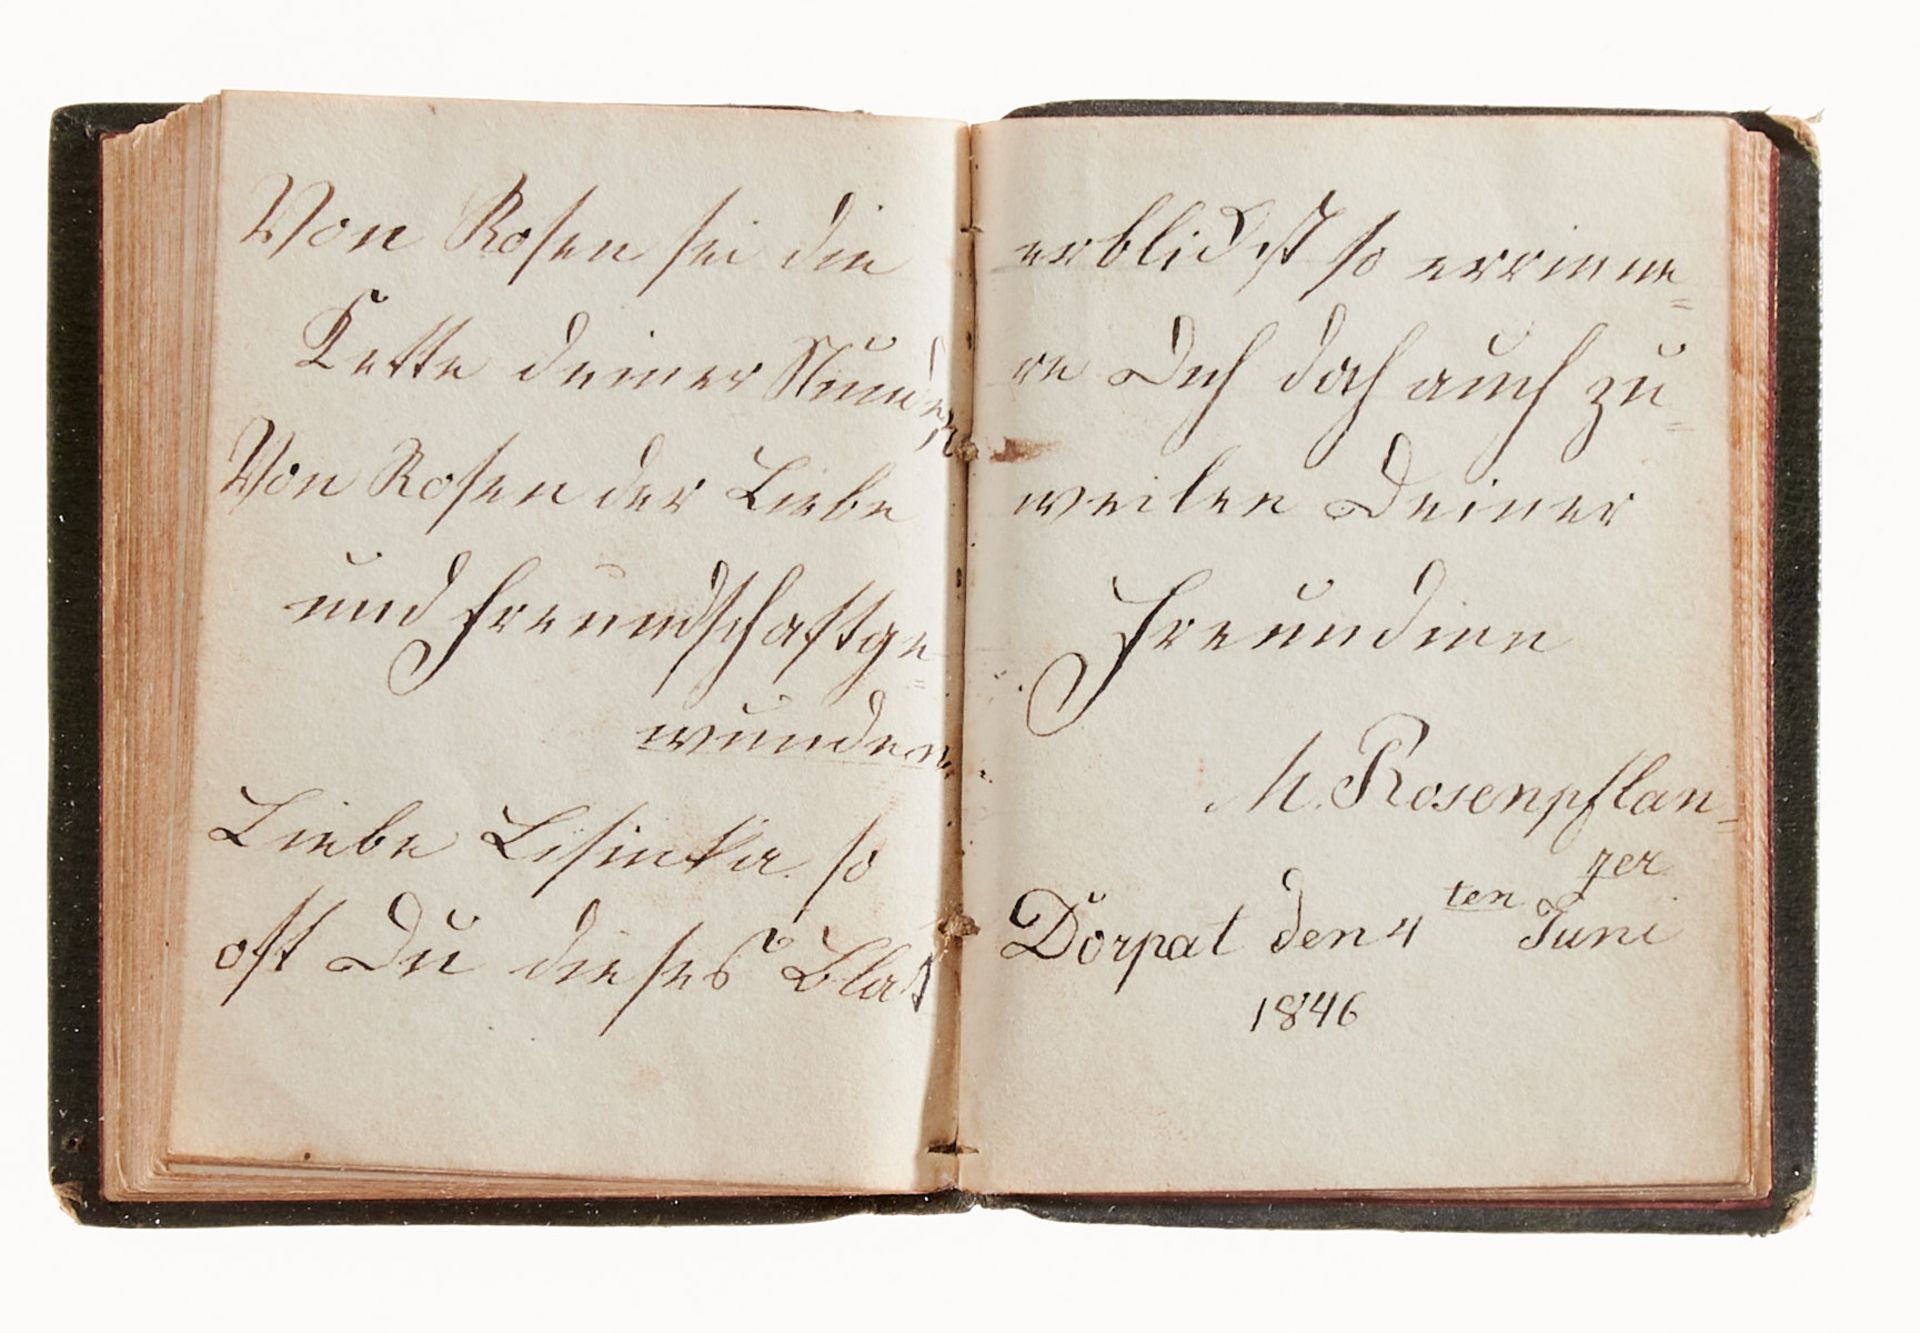 Von Rosen sei die
Kette deiner Stunden
Von Rosen der Liebe
und Freundschaft ge=
wunden.
Liebe Lisinka so
oft Du dieses Blat
erblickst so errinne=
re Dich doch auch zu=
weilen Deiner
Freundinn
M. Rosenpflan=
zer
Dorpat den 4ten Juni
1846